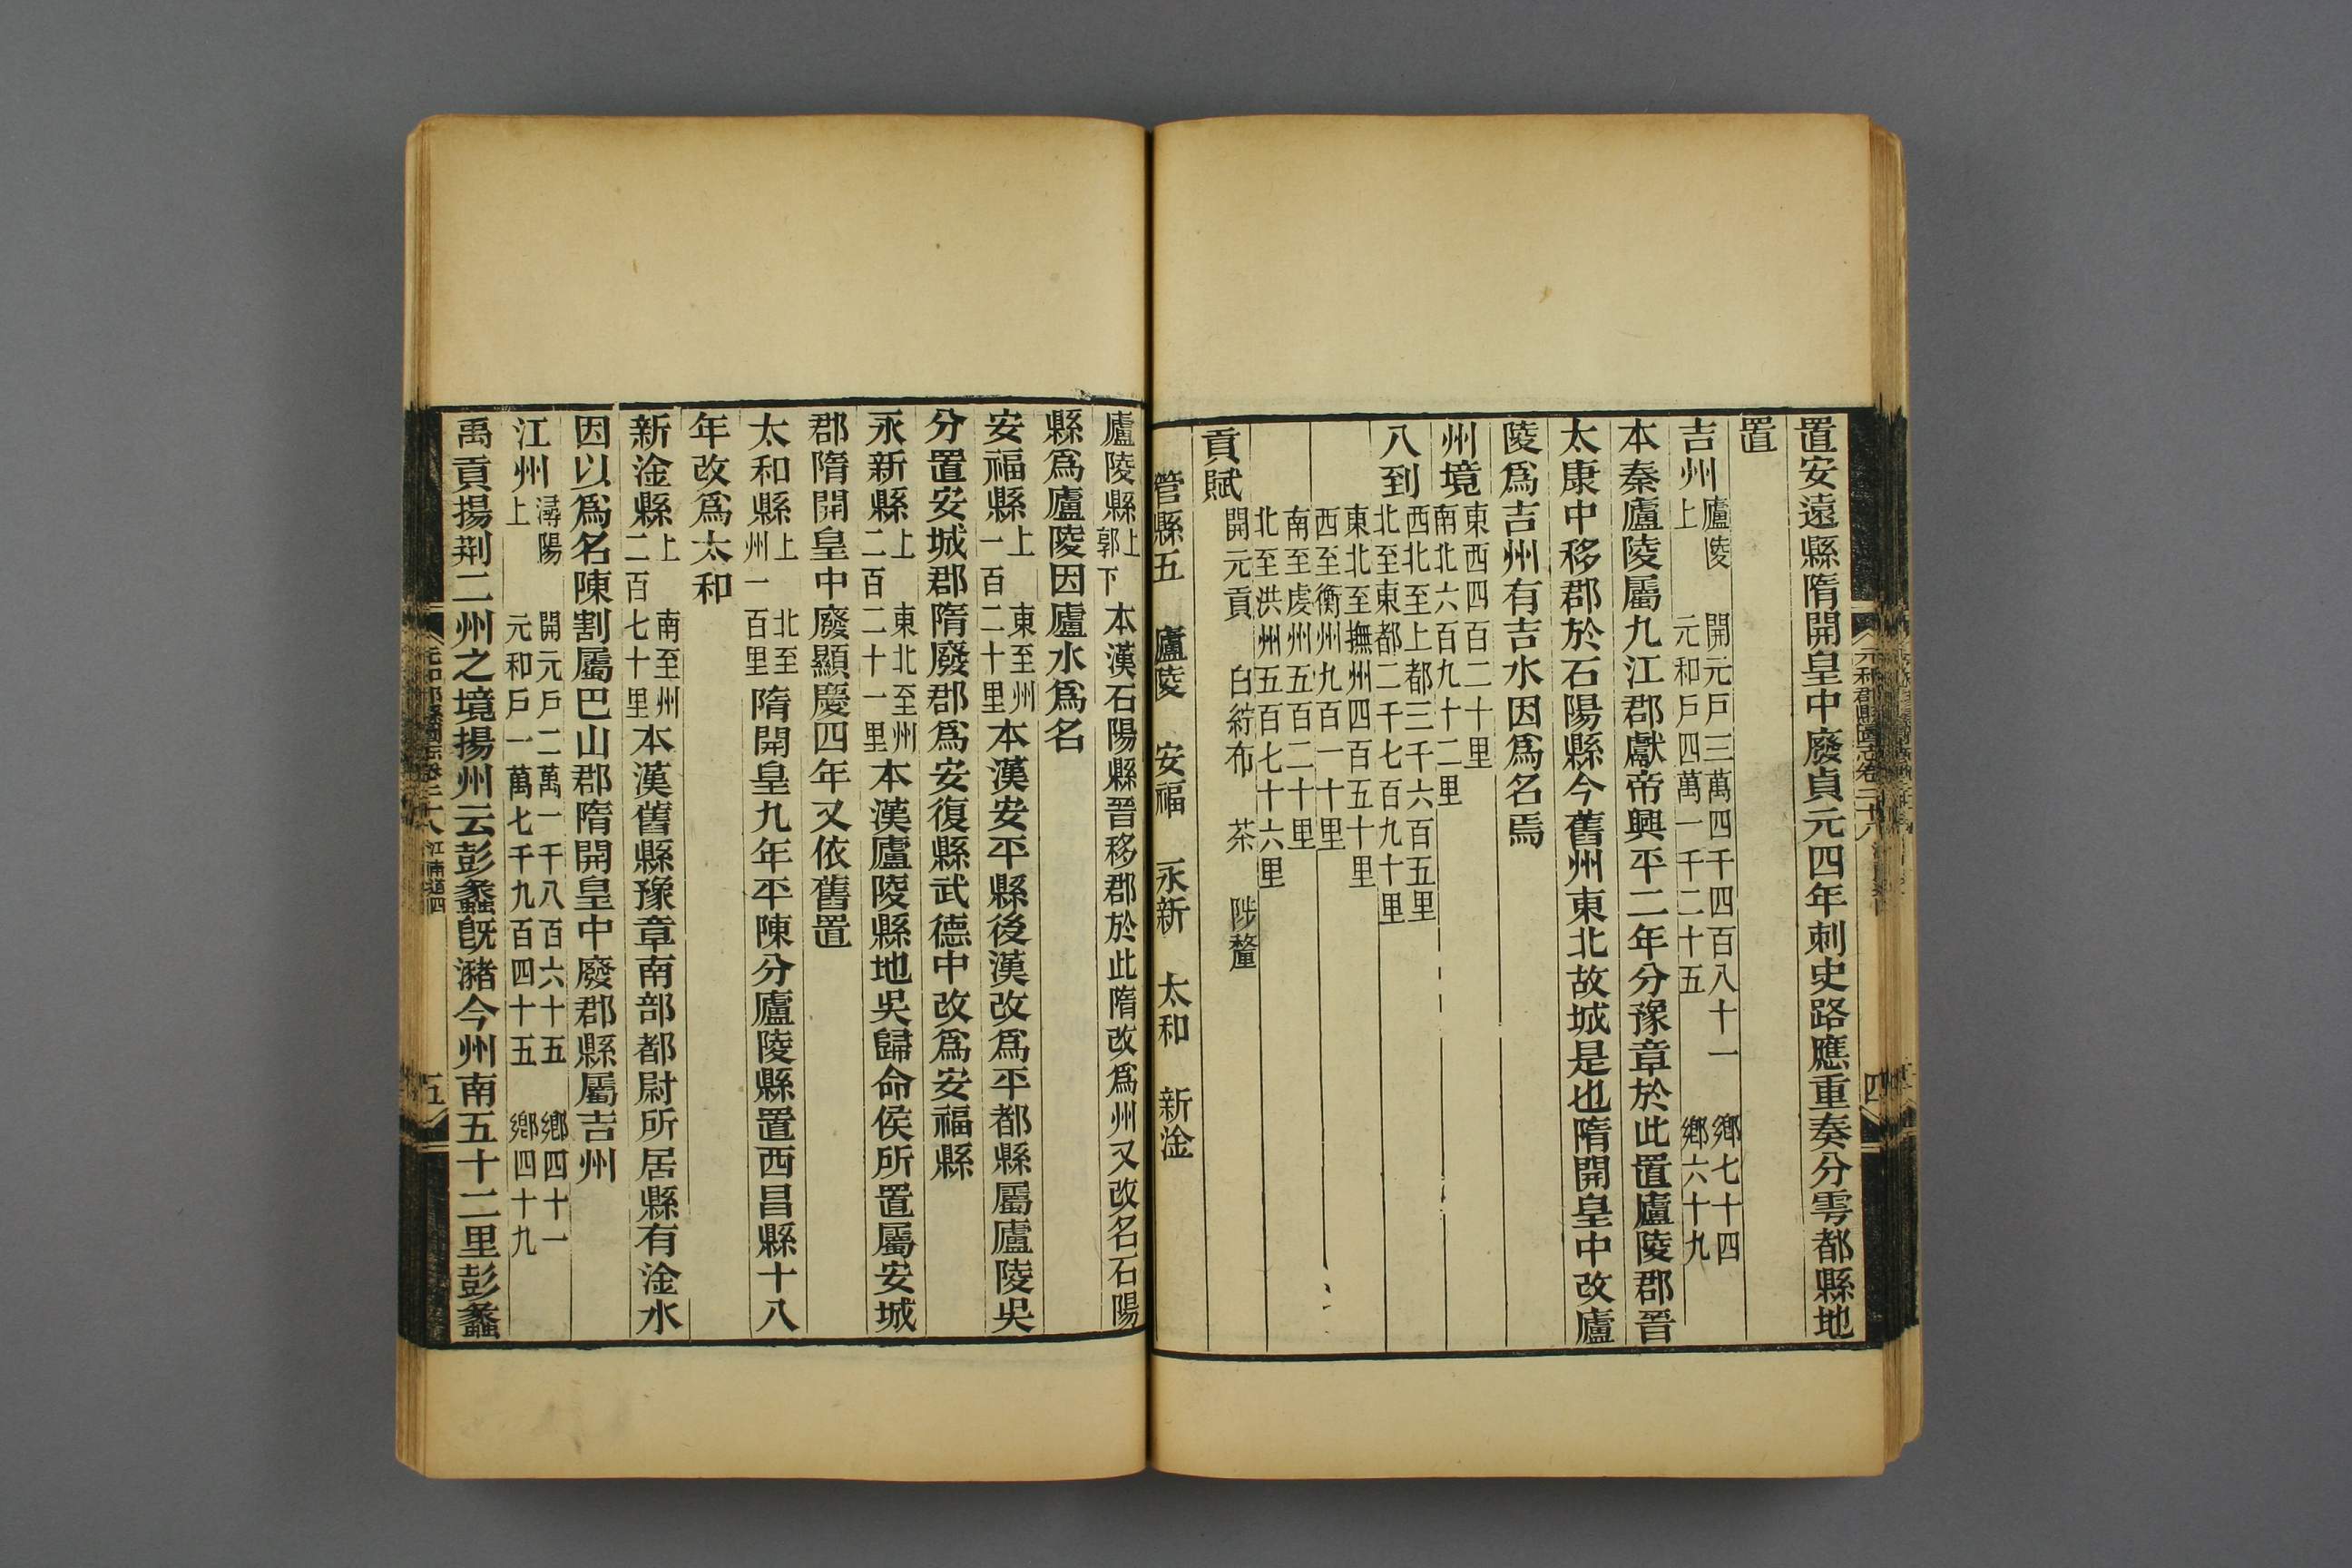 置安遠縣隋開皇中廢貞元四年刺史路應重奏分雩都縣地
置
吉州
廬陵
上
開元戸三萬四千四百八十一
元和戸四萬一千二十五
鄉七十四
鄉六十九
本秦廬陵屬九江郡獻帝興平二年分豫章於此置廬陵郡晉
太康中移郡於石陽縣今舊州東北故城是也隋開皇中改廬
陵爲吉州有吉水因爲名焉
州境
東西四百二十里
南北六百九十二里
八到
西北至上都三千六百五里
北至東都二千七百九十里
東北至撫州四百五十里
西至衡州九百一十里
南至虔州五百二十里
北至洪州五百七十六里
貢賦
開元貢 白紵布 茶 陟釐
管縣五 廬陵 安福 永新 太和 新淦
元和郡縣圖志卷二十八
四
廬陵縣
上
郭下
本漢石陽縣晉移郡於此隋改爲州又改名石陽
縣爲廬陵因廬水爲名
安福縣
上 東至州
一百二十里
本漢安平縣後漢改爲平都縣屬廬陵吳
分置安城郡隋廢郡爲安復縣武德中改爲安福縣
永新縣
上 東北至州
二百二十一里
本漢廬陵縣地吳歸命侯所置屬安城
郡隋開皇中廢顯慶四年又依舊置
太和縣
上 北至
州一百里
隋開皇九年平陳分廬陵縣置西昌縣十八
年改爲太和
新淦縣
上 南至州
二百七十里
本漢舊縣豫章南部都尉所居縣有淦水
因以爲名陳割屬巴山郡隋開皇中廢郡縣屬吉州
江州
潯陽
上
開元戸二萬一千八百六十五
元和戸一萬七千九百四十五
鄉四十一
鄉四十九
禹貢揚荆二州之境揚州云彭蠡旣瀦今州南五十二里彭蠡
元和郡縣圖志卷二十八 江南道四
五